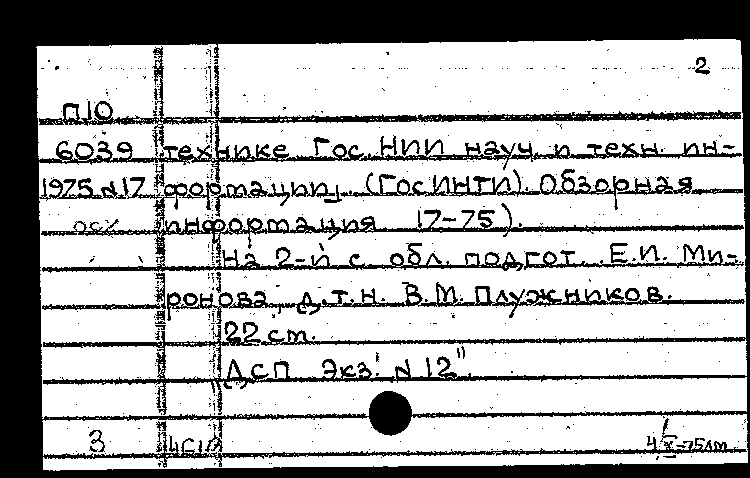 2
П10
6039 технике Гос. НИИ науч. и техн. ин-
1975 N17 формации, (ГосИНТИ). Обзорная
информация 17-75).
На 2-й с. обл. подгот. Е.И. Ми-
ронова, д.т.н. В.М. Плужников.
22 ст.
ДСП Экз. N 12".
3